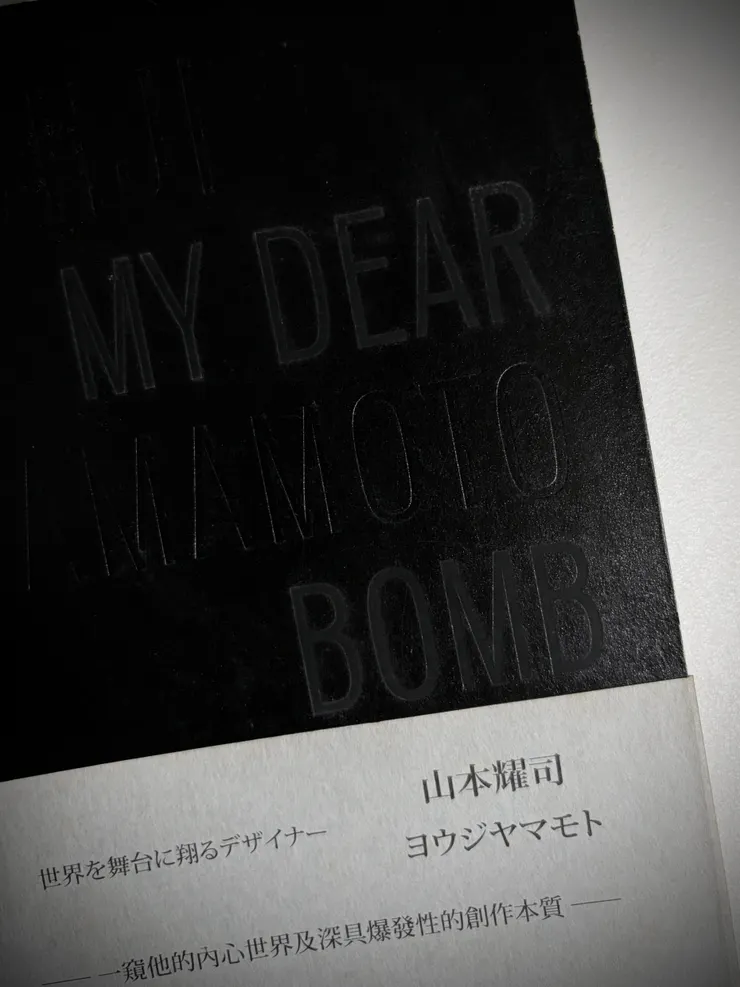 MY DEAR
AMAMOTO
BOMB
山本耀司
ヨウジヤマモト
世界を舞台に翔るデザイナー
—— 一窺他的內心世界及深具爆發性的創作本質 ——